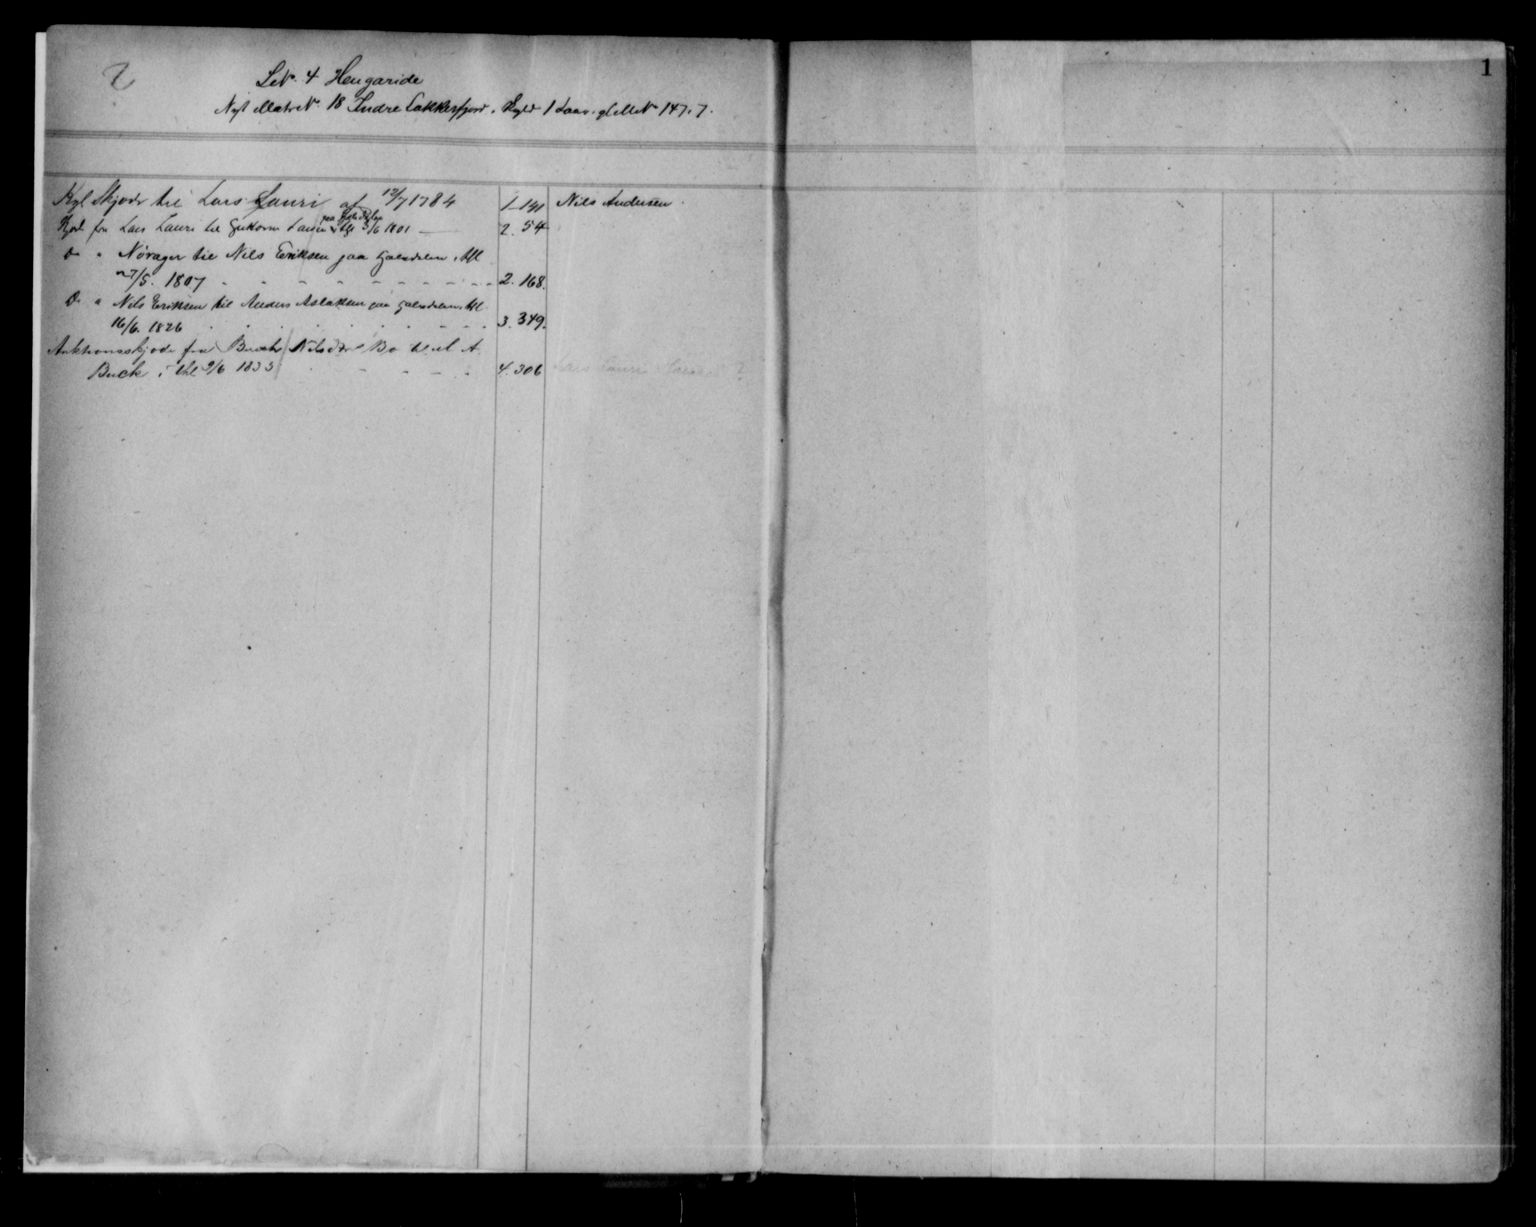 1
L.N. 4 Hengaride
Nyt Matr.N. 18 Indre Lakkesfjord. Skyld 1 Laav. gl. M.N. 147.7.
Kgl Skjøde til Lars Lauri af 12/7 1784 1-141 Nils Andersen.
Skjøde fra Lars Lauri til Guttorm Larsen 3/6 1801 2. 54
Do " Nørager til Nils Eriksen paa i thl
27/5. 1807 2. 168.
Do " Nils Eriksen til Anders Aslaksen paa i thl
16/6. 1826 3. 349.
Auktionsskjøde fra Bo til A.
Buck i thl 9/6 1833 4. 306 Lars Lauri ?